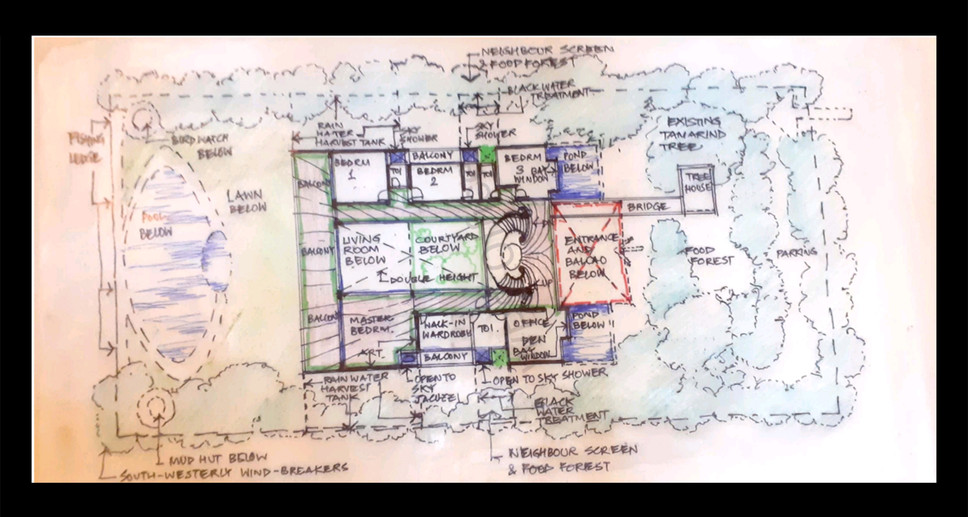 NEIGHBOUR SCREEN
& FOOD FOREST
BLACK WATER
TREATMENT
RAIN
WATER
HARVEST TANK
SKY
SHOWER
SKY
SHOWER
EXISTING
TAMARIND
TREE
FISHING
LEDGE
BIRD WATCH
BELOW
BEDRM
1
TOI
BALCONY
BEDRM
2
TOI
TOI
BEDRM
3 BAY
WINDOW
POND
BELOW
TREE
HOUSE
BALCONY
LAWN
BELOW
BRIDGE
BELOW
BALCONY
LIVING
ROOM
BELOW
COURTYARD
BELOW
DOUBLE HEIGHT
ENTRANCE
AND
BALCAO
BELOW
UP
FOOD
FOREST
PARKING
BALCONY
MASTER
BEDRM.
WALK-IN
WARDROBE
TOI.
OFFICE
DEN
BAY
WINDOW
POND
BELOW
BALCONY
RAIN WATER
HARVEST
TANK
OPEN TO
SKY
OPEN TO SKY SHOWER
BLACK
WATER
TREATMENT
MUD HUT BELOW
SOUTH-WESTERLY WIND-BREAKERS
NEIGHBOUR SCREEN
& FOOD FOREST